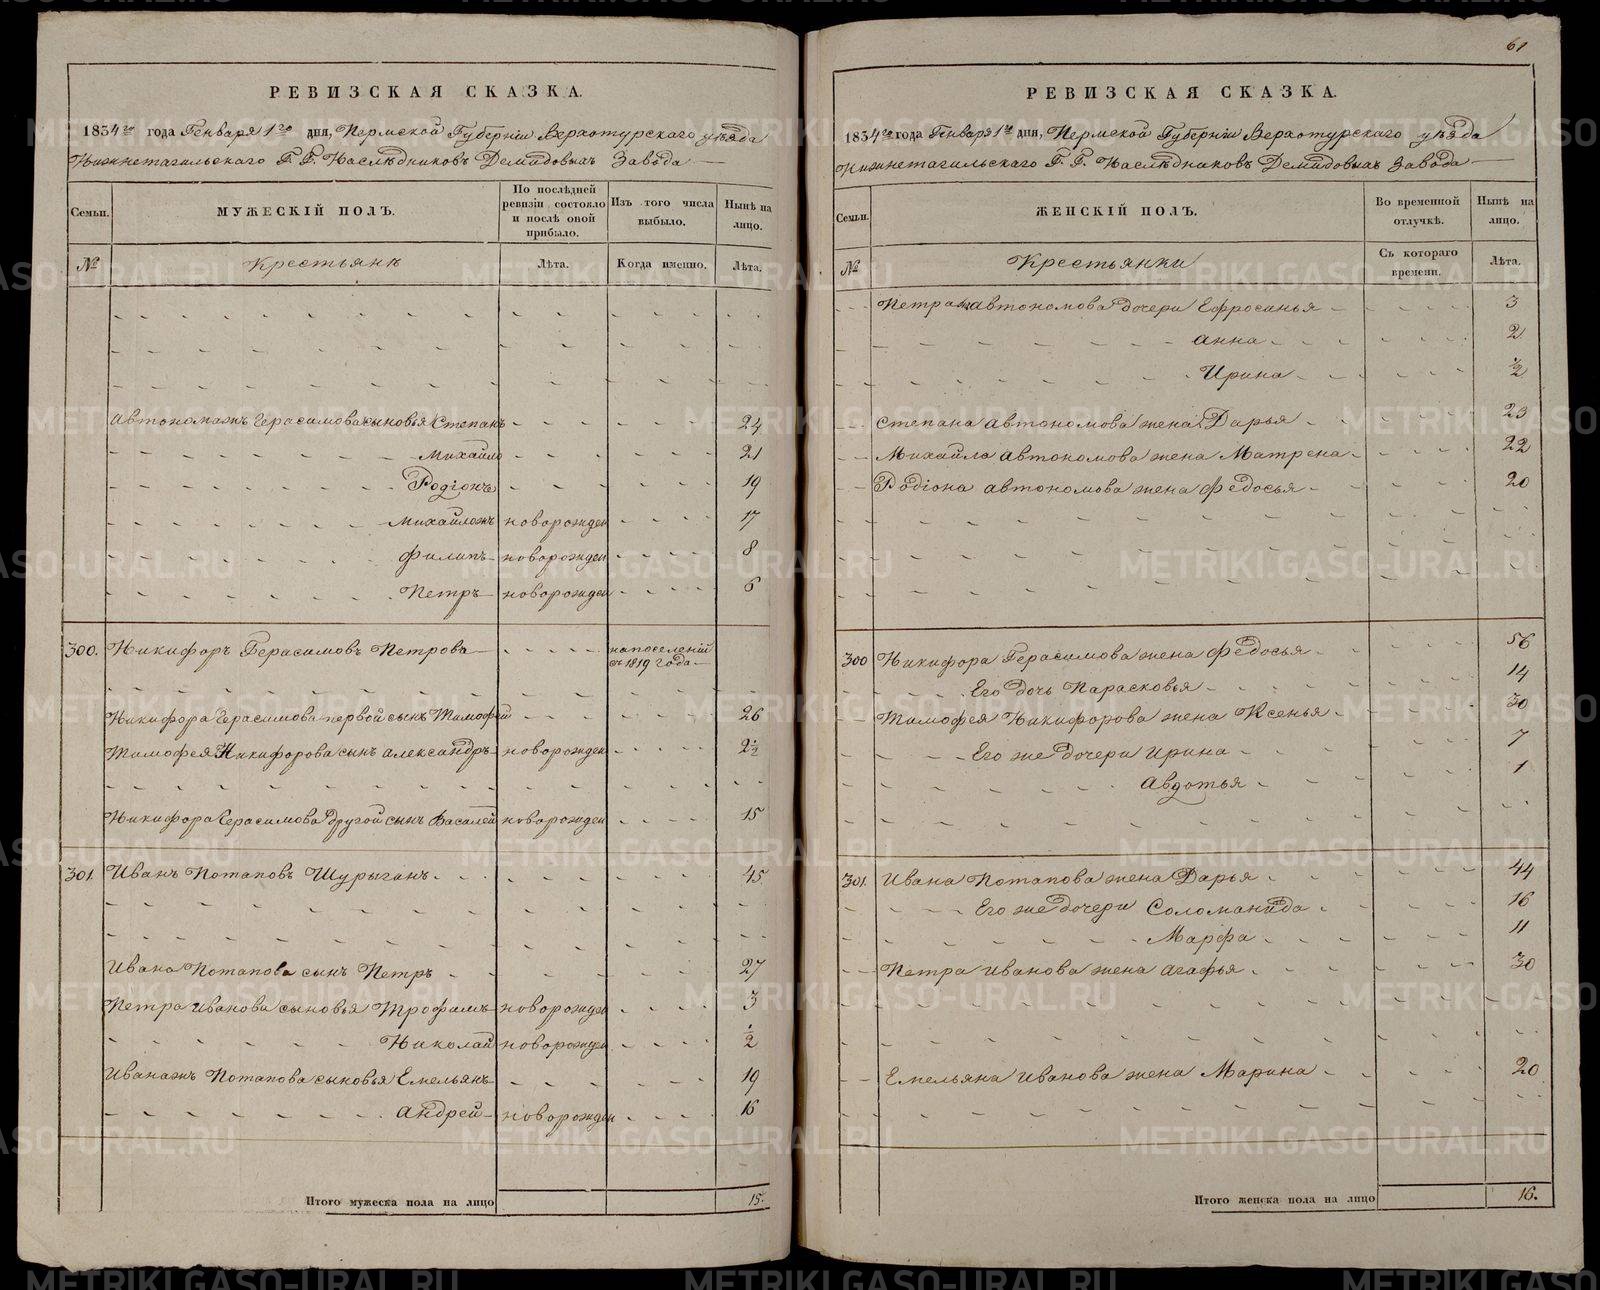 РЕВИЗСКАЯ СКАЗКА.
1834го года Генваря 1го дня, Пермской Губерніи Верхотурскаго уѣзда
Нижнетагильскаго Г. Г. Наслѣдниковъ Демидовыхъ Завода
Семьи. МУЖЕСКІЙ ПОЛЪ. По послѣдней ревизіи состояло и послѣ оной прибыло. Изъ того числа выбыло. Нынѣ на лицо.
№ Крестьянѣ Лѣта. Когда именно. Лѣта.
Автономажъ Герасимова сыновья Степанъ 24
Михайло 21
Родіонъ 19
Михайложъ новорожден 17
Филипъ новорожден 8
Петръ новорожден 6
300. Никифоръ Герасимовъ Петрова на поселеніи съ 1819 года
Никифора Герасимова первой сынъ Тимофей 26
Тимофея Никифорова сынъ Александръ новорожден 2½
Никифора Герасимова другой сынъ Василей новорожден 15
301. Иванъ Потаповъ Шурыганъ 45
Ивана Потапова сынъ Петръ 27
Петра Иванова сыновья Трофимъ новорожден 3
Николай новорожден ½
Иванажъ Потапова сыновья Емельянъ 19
Андрей новорожден 16
Итого мужеска пола на лицо 15.
61
РЕВИЗСКАЯ СКАЗКА.
1834го года Генваря 1го дня, Пермской Губерніи Верхотурскаго уѣзда
Нижнетагильскаго Г. Г. Наслѣдниковъ Демидовыхъ Завода
Семьи. ЖЕНСКІЙ ПОЛЪ. Во временной отлучкѣ. Нынѣ на лицо.
№ Крестьянки Съ котораго времени. Лѣта.
Петра Автономова дочери Ефросинья 3
Анна 2
Ирина ½
Степана Автономова жена Дарья 23
Михайла Автономова жена Матрена 22
Родіона Автономова жена Федосья 20
300 Никифора Герасимова жена Федосья 56
Его дочь Парасковья 14
Тимофея Никифорова жена Ксенья 30
Его же дочери Ирина 7
Авдотья 1
301. Ивана Потапова жена Дарья 44
Его же дочери Соломанида 16
Марфа 11
Петра Иванова жена Агафья 30
Емельяна Иванова жена Марина 20
Итого женска пола на лицо 16.
METRIKI.GASO-URAL.RU